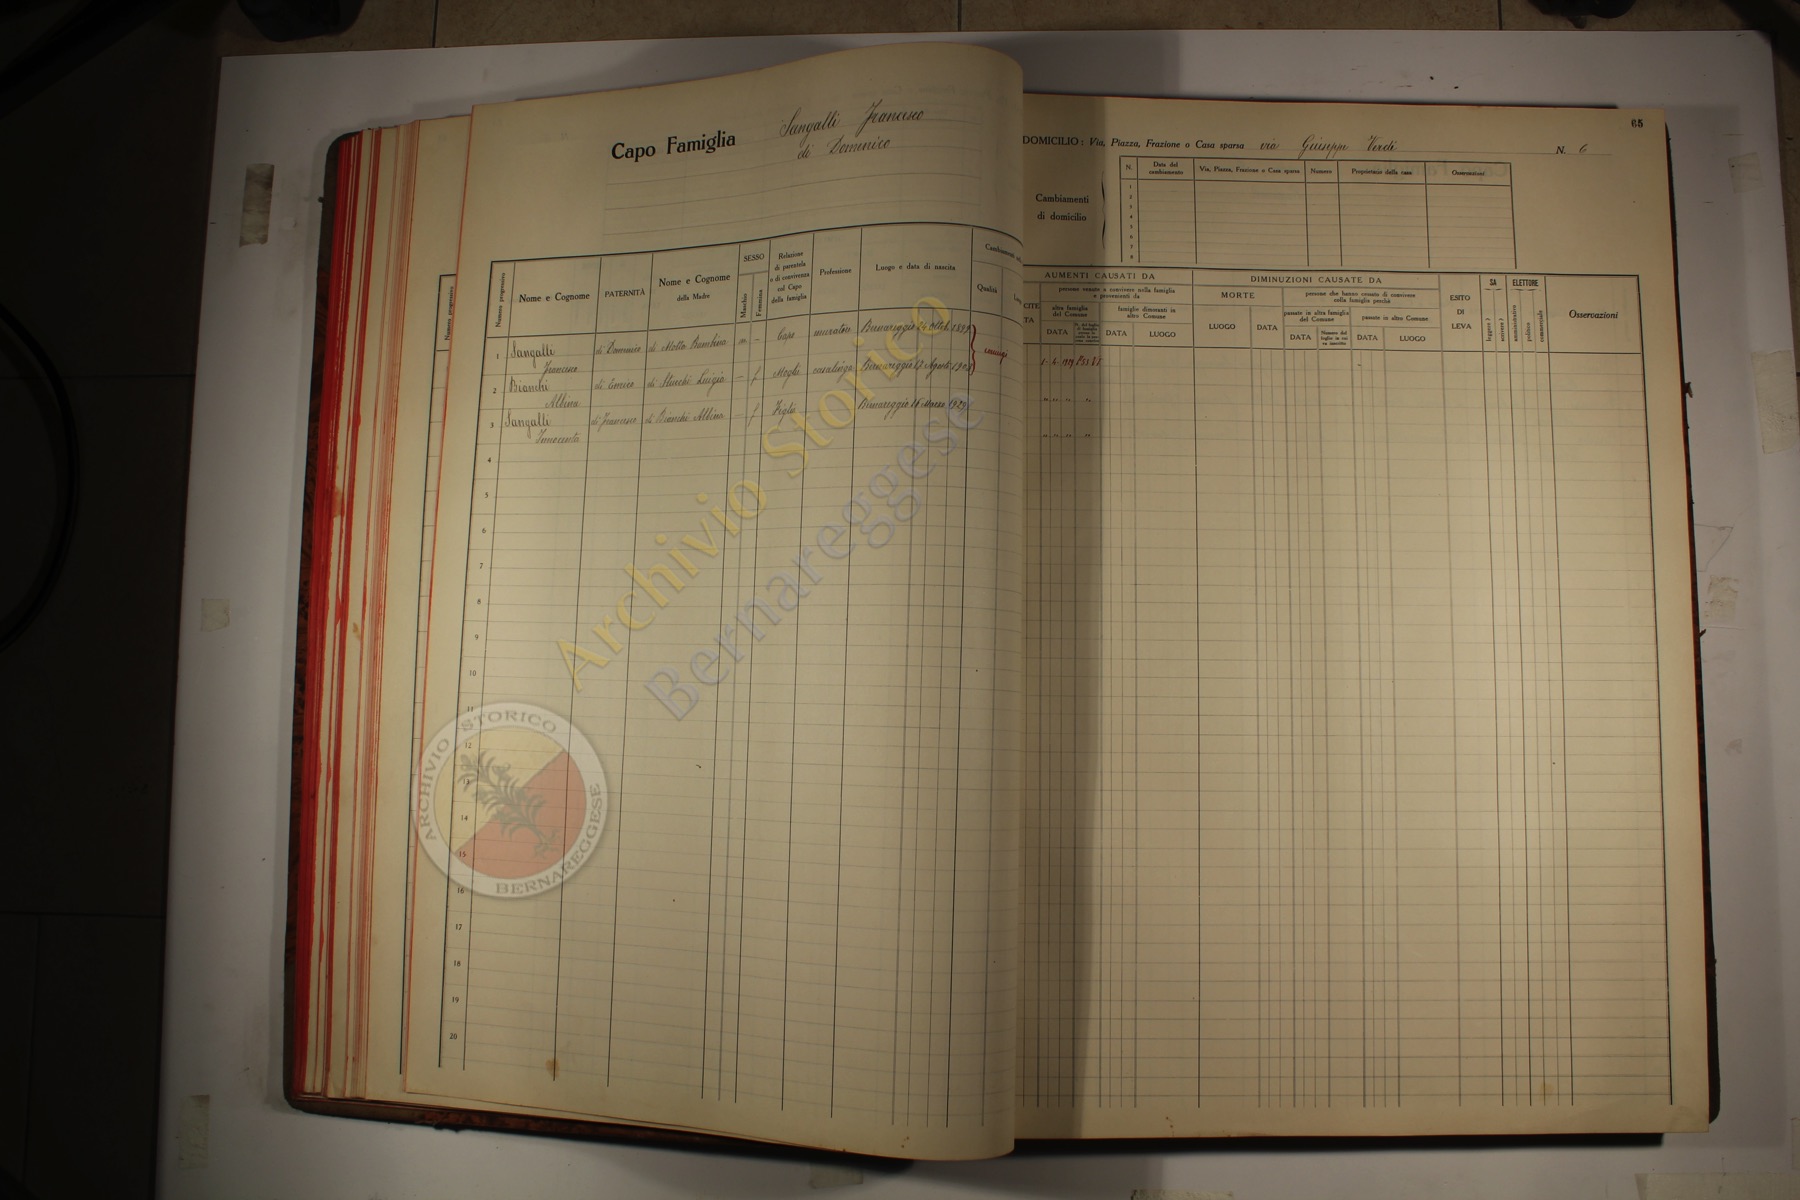 Capo Famiglia Sangalli Francesco
di Domenico
65
DOMICILIO: Via, Piazza, Frazione o Casa sparsa via Giuseppe Verdi N. 6
Cambiamenti
di domicilio
N. Data del cambiamento Via, Piazza, Frazione o Casa sparsa Numero Proprietario della casa Osservazioni
1
2
3
4
5
6
7
8
Numero progressivo
Nome e Cognome
PATERNITÀ
Nome e Cognome
della Madre
SESSO
Maschio
Femmina
Relazione
di parentela
o di convivenza
col Capo
della famiglia
Professione
Luogo e data di nascita
Qualità
AUMENTI CAUSATI DA
persone venute a convivere nella famiglia
e provenienti da
altra famiglia
del Comune
famiglie dimoranti in
altro Comune
DATA
DATA
LUOGO
DIMINUZIONI CAUSATE DA
MORTE
LUOGO
DATA
persone che hanno cessato di convivere
nella famiglia perchè
passate in altra famiglia
del Comune
passate in altro Comune
DATA
DATA
LUOGO
ESITO
DI
LEVA
SA
leggere ?
scrivere ?
ELETTORE
amministrativo
politico
commerciale
Osservazioni
1 Sangalli Francesco di Domenico di Motta Bambina m - Capo muratore Bernareggio 24 Ottob. 1899 coniugi
2 Bianchi Albina di Enrico di Stucchi Luigia - f Moglie casalinga Bernareggio 17 Agosto
3 Sangalli Innocenta di Francesco di Bianchi Albina - f Figlia Bernareggio 16 Marzo 1929
4
5
6
7
8
9
10
11
12
13
14
15
16
17
18
19
20
Archivio Storico
Bernareggese
ARCHIVIO STORICO
BERNAREGGESE